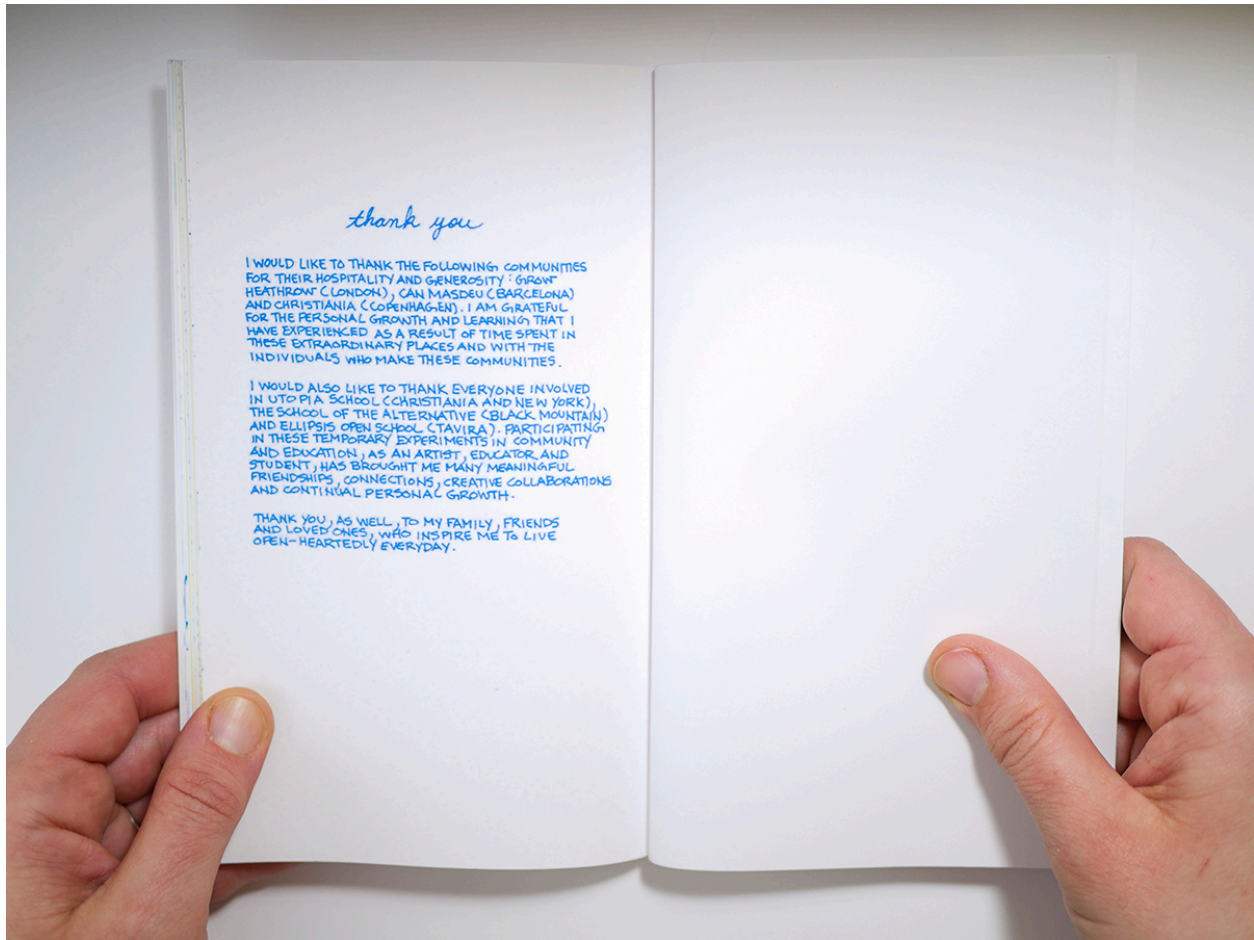 thank you
I WOULD LIKE TO THANK THE FOLLOWING COMMUNITIES
FOR THEIR HOSPITALITY AND GENEROSITY: GROW
HEATHROW (LONDON), CAN MASDEU (BARCELONA)
AND CHRISTIANIA (COPENHAGEN). I AM GRATEFUL
FOR THE PERSONAL GROWTH AND LEARNING THAT I
HAVE EXPERIENCED AS A RESULT OF TIME SPENT IN
THESE EXTRAORDINARY PLACES AND WITH THE
INDIVIDUALS WHO MAKE THESE COMMUNITIES.
I WOULD ALSO LIKE TO THANK EVERYONE INVOLVED
IN UTOPIA SCHOOL (CHRISTIANIA AND NEW YORK),
THE SCHOOL OF THE ALTERNATIVE (BLACK MOUNTAIN)
AND ELLIPSIS OPEN SCHOOL (TAVIRA). PARTICIPATING
IN THESE TEMPORARY EXPERIMENTS IN COMMUNITY
AND EDUCATION, AS AN ARTIST, EDUCATOR AND
STUDENT, HAS BROUGHT ME MANY MEANINGFUL
FRIENDSHIPS, CONNECTIONS, CREATIVE COLLABORATIONS
AND CONTINUAL PERSONAL GROWTH.
THANK YOU, AS WELL, TO MY FAMILY, FRIENDS
AND LOVED ONES, WHO INSPIRE ME TO LIVE
OPEN-HEARTEDLY EVERYDAY.